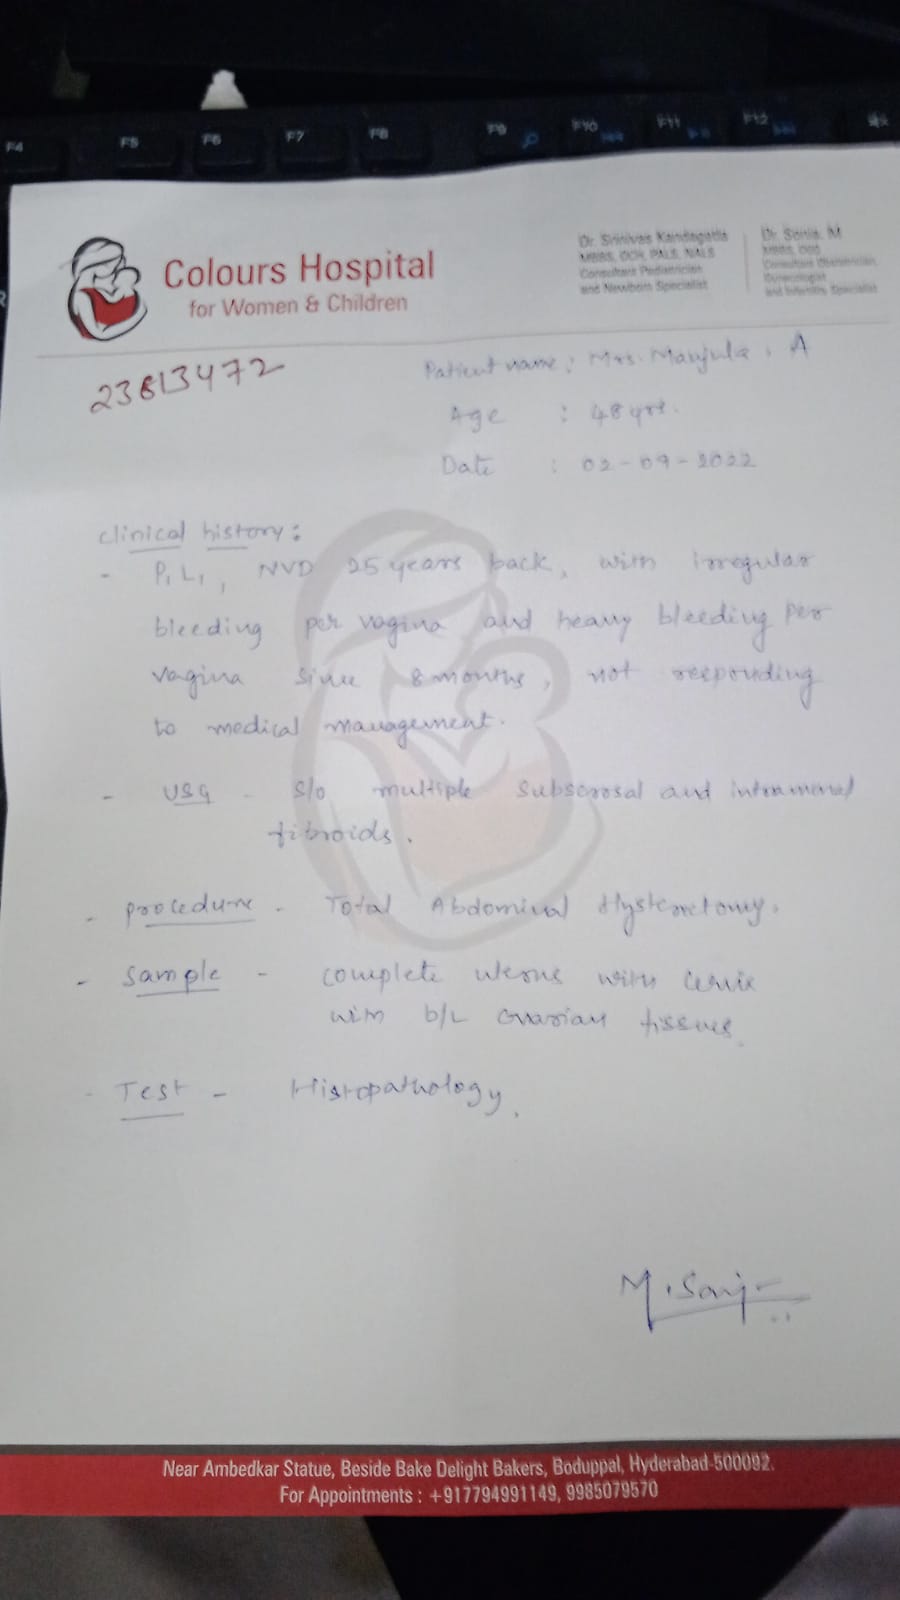 F4 F5 F6 F7 F8 F9 F10 F11 F12
Colours Hospital
for Women & Children
Dr. Srinivas Kandagatla
MBBS, DCH, PALS, NALS
Consultant Pediatrician
and Newborn Specialist
Dr. Sonia. M
MBBS, DGO
Consultant Obstetrician,
Gynecologist
and Infertility Specialist
23813472
Patient name : Mrs. Manjula . A
Age : 48 yrs.
Date : 02-09-2022
clinical history :
- P1 L1, NVD 25 years back, with irregular
bleeding per vagina and heavy bleeding per
vagina since 8 months, not responding
to medical management.
- USG - S/o multiple subserosal and intramural
fibroids.
- procedure - Total Abdominal Hysterectomy.
- Sample - complete uterus with cervix
with b/L ovarian tissues.
- Test - Histopathology.
Near Ambedkar Statue, Beside Bake Delight Bakers, Boduppal, Hyderabad-500092.
For Appointments : +917794991149, 9985079570